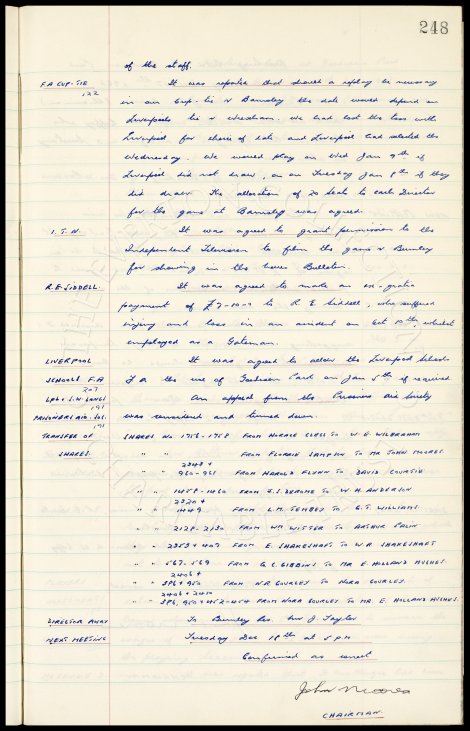 248
of the staff.
F.A CUP-TIE It was reported that should a replay be necessary
122 in our Cup-tie v Barnsley the date would depend on
Liverpools tie v Wrexham. We had lost the toss with
Liverpool for choice of date and Liverpool had selected the
Wednesday. We would play on Wed Jan 9th if
Liverpool did not draw, or on Tuesday Jan 8th if they
did draw. The allocation of 20 seats to each Director
for the game at Barnsley was agreed.
I.T.N. It was agreed to grant permission to the
Independent Television to film the game v Burnley
for showing in the News Bulletin.
R.E. SIDDELL. It was agreed to make an ex-gratia
payment of £7-10-0 to R E Siddell, who suffered
injury and loss in an accident on Oct 10th, whilst
employed as a Gateman.
LIVERPOOL It was agreed to allow the Liverpool Schools
SCHOOLS F.A F A the use of Goodison Park on Jan 5th if required
207
LPL & S.W. LANCS An appeal from the Prisoners Aid Society
191
PRISONERS AID. SOC. was considered and turned down.
191
TRANSFER OF SHARES NO 1756-1758 FROM HORACE CLEGG TO W.E. WILBRAHAM
SHARES. FROM FLORRIE SAMPSON TO MR JOHN MOORES.
" " 2348 +
960-961 FROM HAROLD FLYNN TO DAVID
" " 1458-1460 FROM J.S. DEROME TO W.H. ANDERSON
" " 2320 +
1449 FROM L.M. TO G.T. WILLIAMS.
" " 2128-2130 FROM WM WITTER TO ARTHUR PALIN
" " 2353 + 407 FROM E. SHAKESHAFT TO W.A. SHAKESHAFT
" " 567-569 FROM G.C. GIBBINS TO MR E. HOLLAND HUGHES
" " 2406 +
396 + 950 FROM N.R GOURLEY TO NORA GOURLEY.
" " 2406 + 2410
396, 950 + 452-454 FROM NORA GOURLEY TO MR. E. HOLLAND HUGHES.
DIRECTOR AWAY To Burnley Res. Mr J. Taylor
NEXT MEETING Tuesday Dec 18th at 5 PM
Confirmed as correct
John Moores
CHAIRMAN.